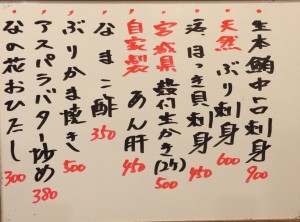 生本鮪中トロ刺身 900
天然 ぶり刺身 600
活ほっき貝刺身 450
宮城県 殻付生かき(2ケ) 500
自家製 あん肝 450
なまこ酢 350
ぶりかま焼き 500
アスパラバター炒め 380
なの花おひたし 300